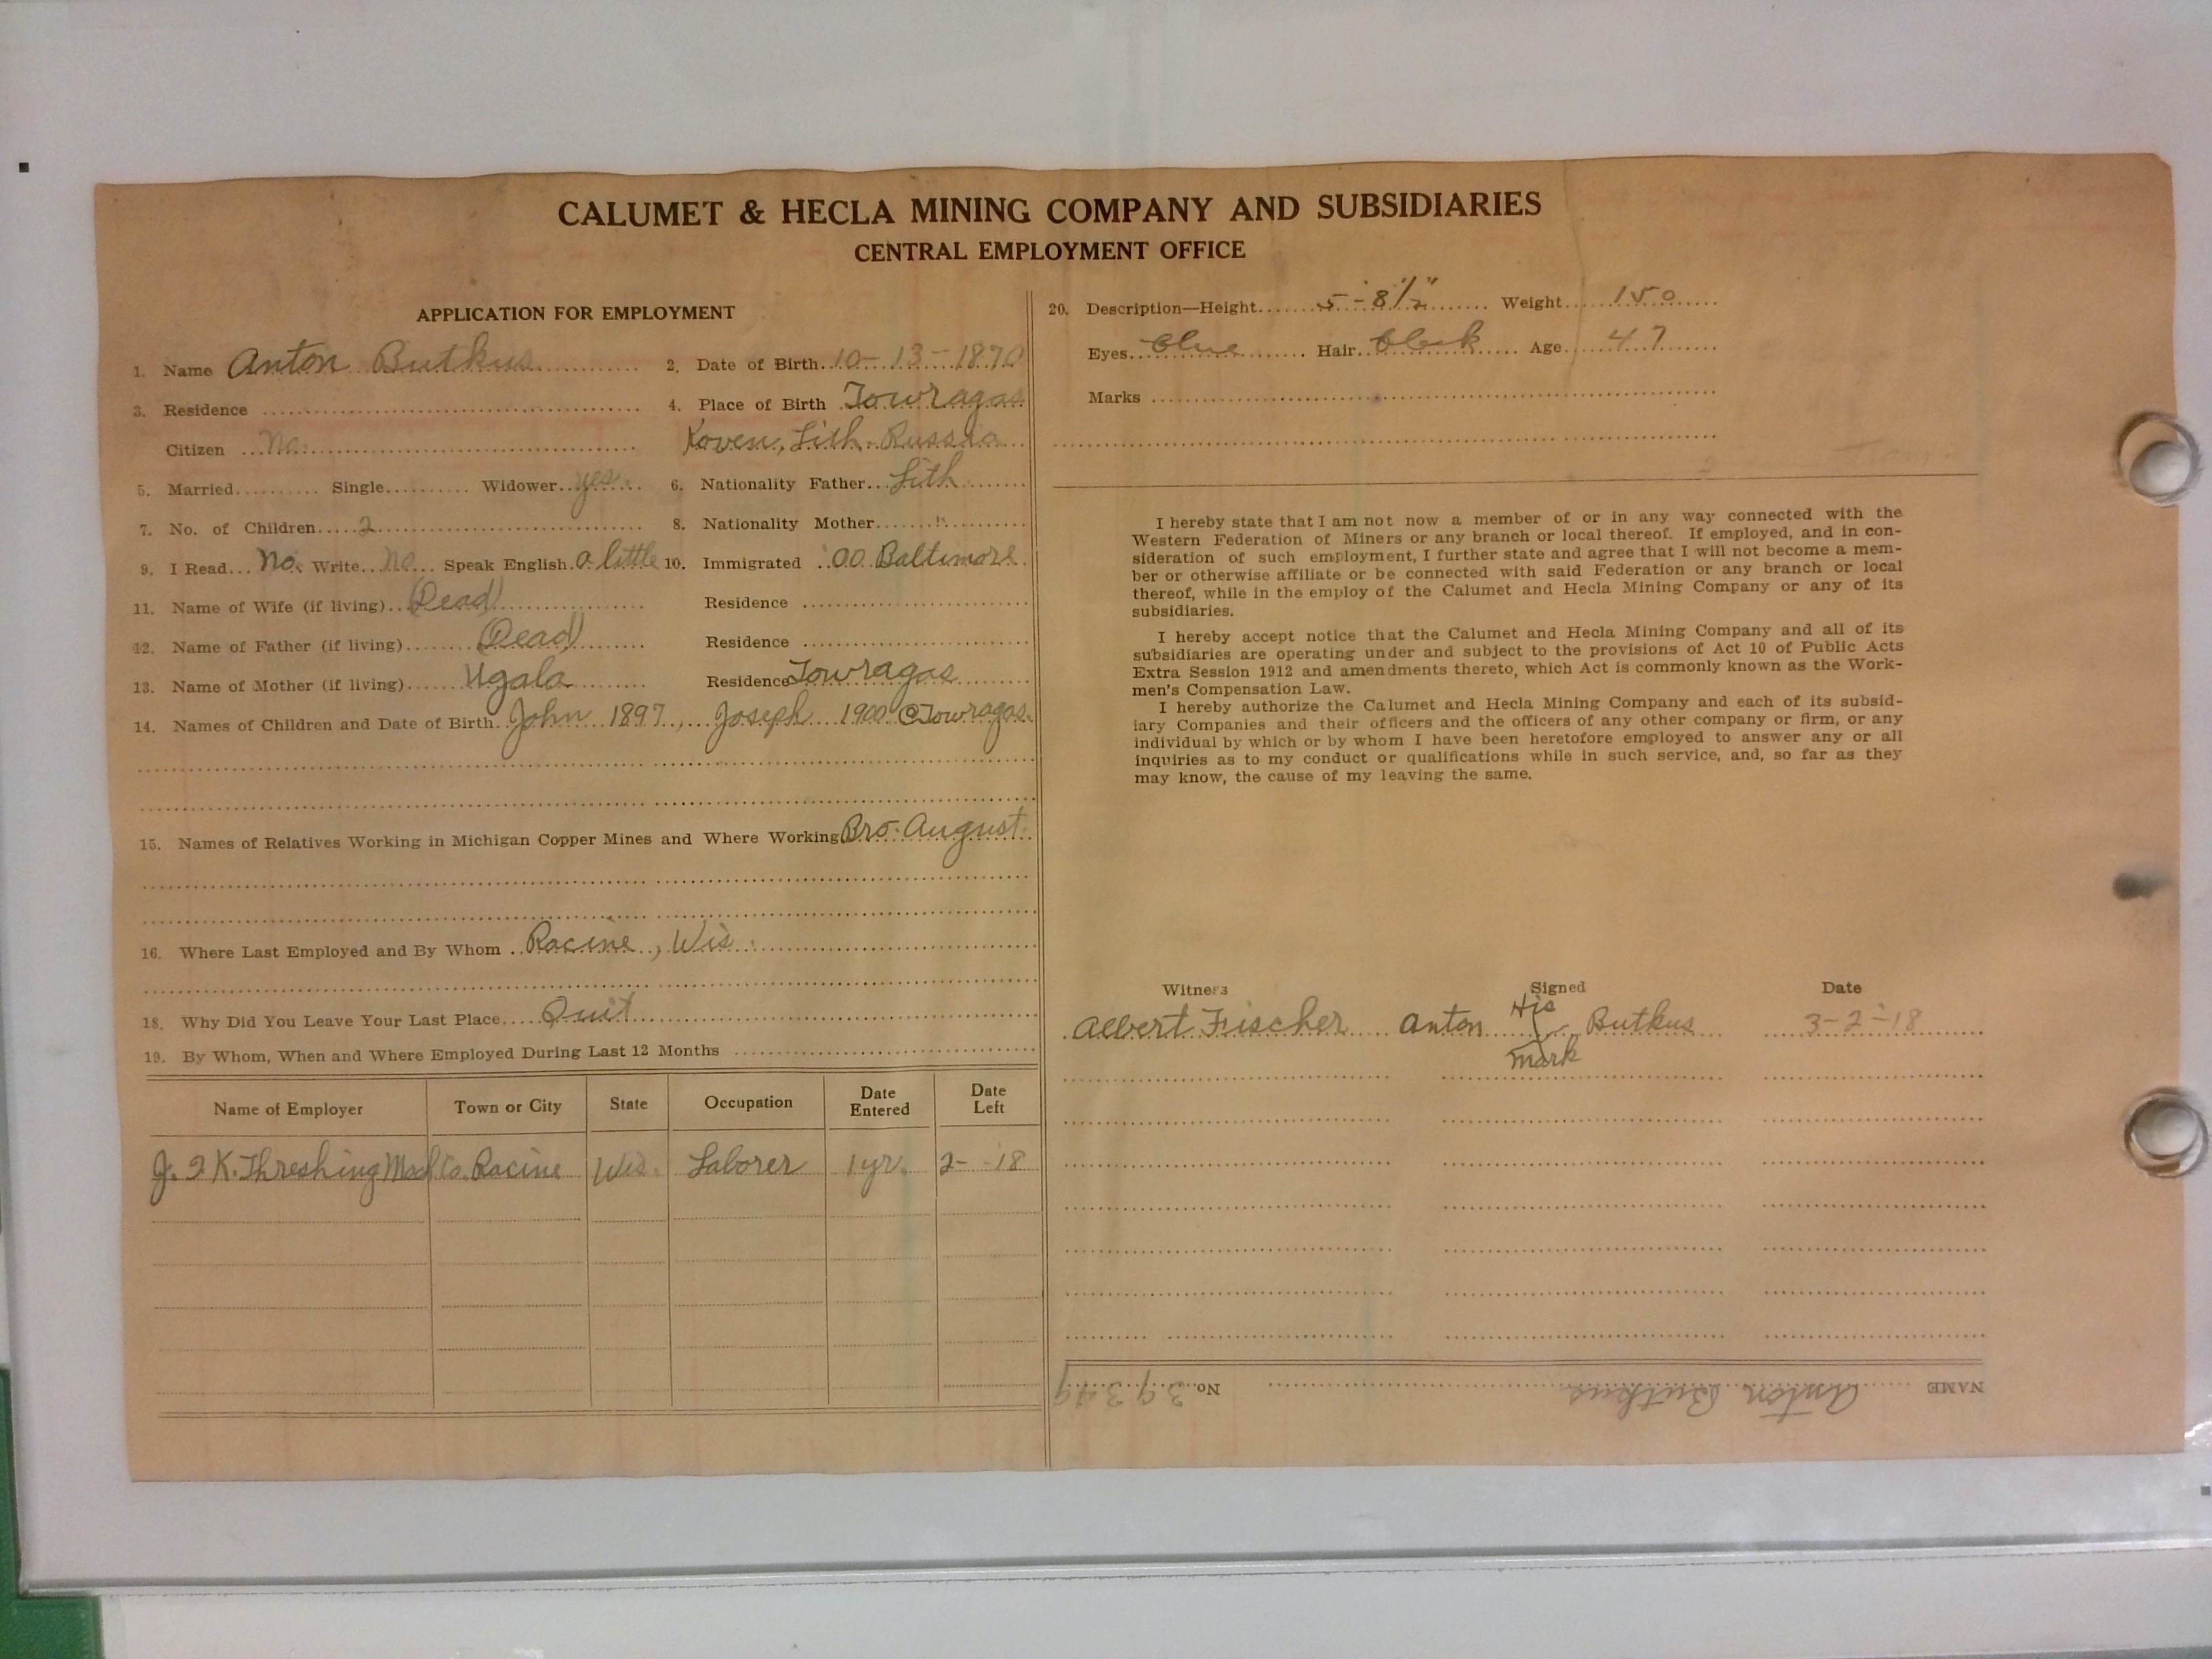 CALUMET & HECLA MINING COMPANY AND SUBSIDIARIES
CENTRAL EMPLOYMENT OFFICE
APPLICATION FOR EMPLOYMENT
1. Name Anton Butkus 2. Date of Birth 10-13-1870
3. Residence 4. Place of Birth Towragas
Citizen No. Koven, Lith. Russia
5. Married Single Widower yes 6. Nationality Father Lith
7. No. of Children 2 8. Nationality Mother "
9. I Read No. Write No Speak English a little 10. Immigrated '00 Baltimore
11. Name of Wife (if living) (Dead) Residence
12. Name of Father (if living) (Dead) Residence
13. Name of Mother (if living) Ugala Residence Towragas
14. Names of Children and Date of Birth John 1897, Joseph 1900 @ Towragas
15. Names of Relatives Working in Michigan Copper Mines and Where Working Bro. August
16. Where Last Employed and By Whom Racine, Wis.
18. Why Did You Leave Your Last Place Quit
19. By Whom, When and Where Employed During Last 12 Months
Name of Employer Town or City State Occupation Date Entered Date Left
J. I K. Threshing Mach Co. Racine Wis. Laborer 1 yr. 2- -18
20. Description—Height 5'-8 1/2" Weight 150
Eyes blue Hair black Age 47
Marks
I hereby state that I am not now a member of or in any way connected with the
Western Federation of Miners or any branch or local thereof. If employed, and in con-
sideration of such employment, I further state and agree that I will not become a mem-
ber or otherwise affiliate or be connected with said Federation or any branch or local
thereof, while in the employ of the Calumet and Hecla Mining Company or any of its
subsidiaries.
I hereby accept notice that the Calumet and Hecla Mining Company and all of its
subsidiaries are operating under and subject to the provisions of Act 10 of Public Acts
Extra Session 1912 and amendments thereto, which Act is commonly known as the Work-
men's Compensation Law.
I hereby authorize the Calumet and Hecla Mining Company and each of its subsid-
iary Companies and their officers and the officers of any other company or firm, or any
individual by which or by whom I have been heretofore employed to answer any or all
inquiries as to my conduct or qualifications while in such service, and, so far as they
may know, the cause of my leaving the same.
Witness Signed Date
Albert Fischer Anton His X Mark Butkus 3-2-18
NAME Anton Butkus No. 39349